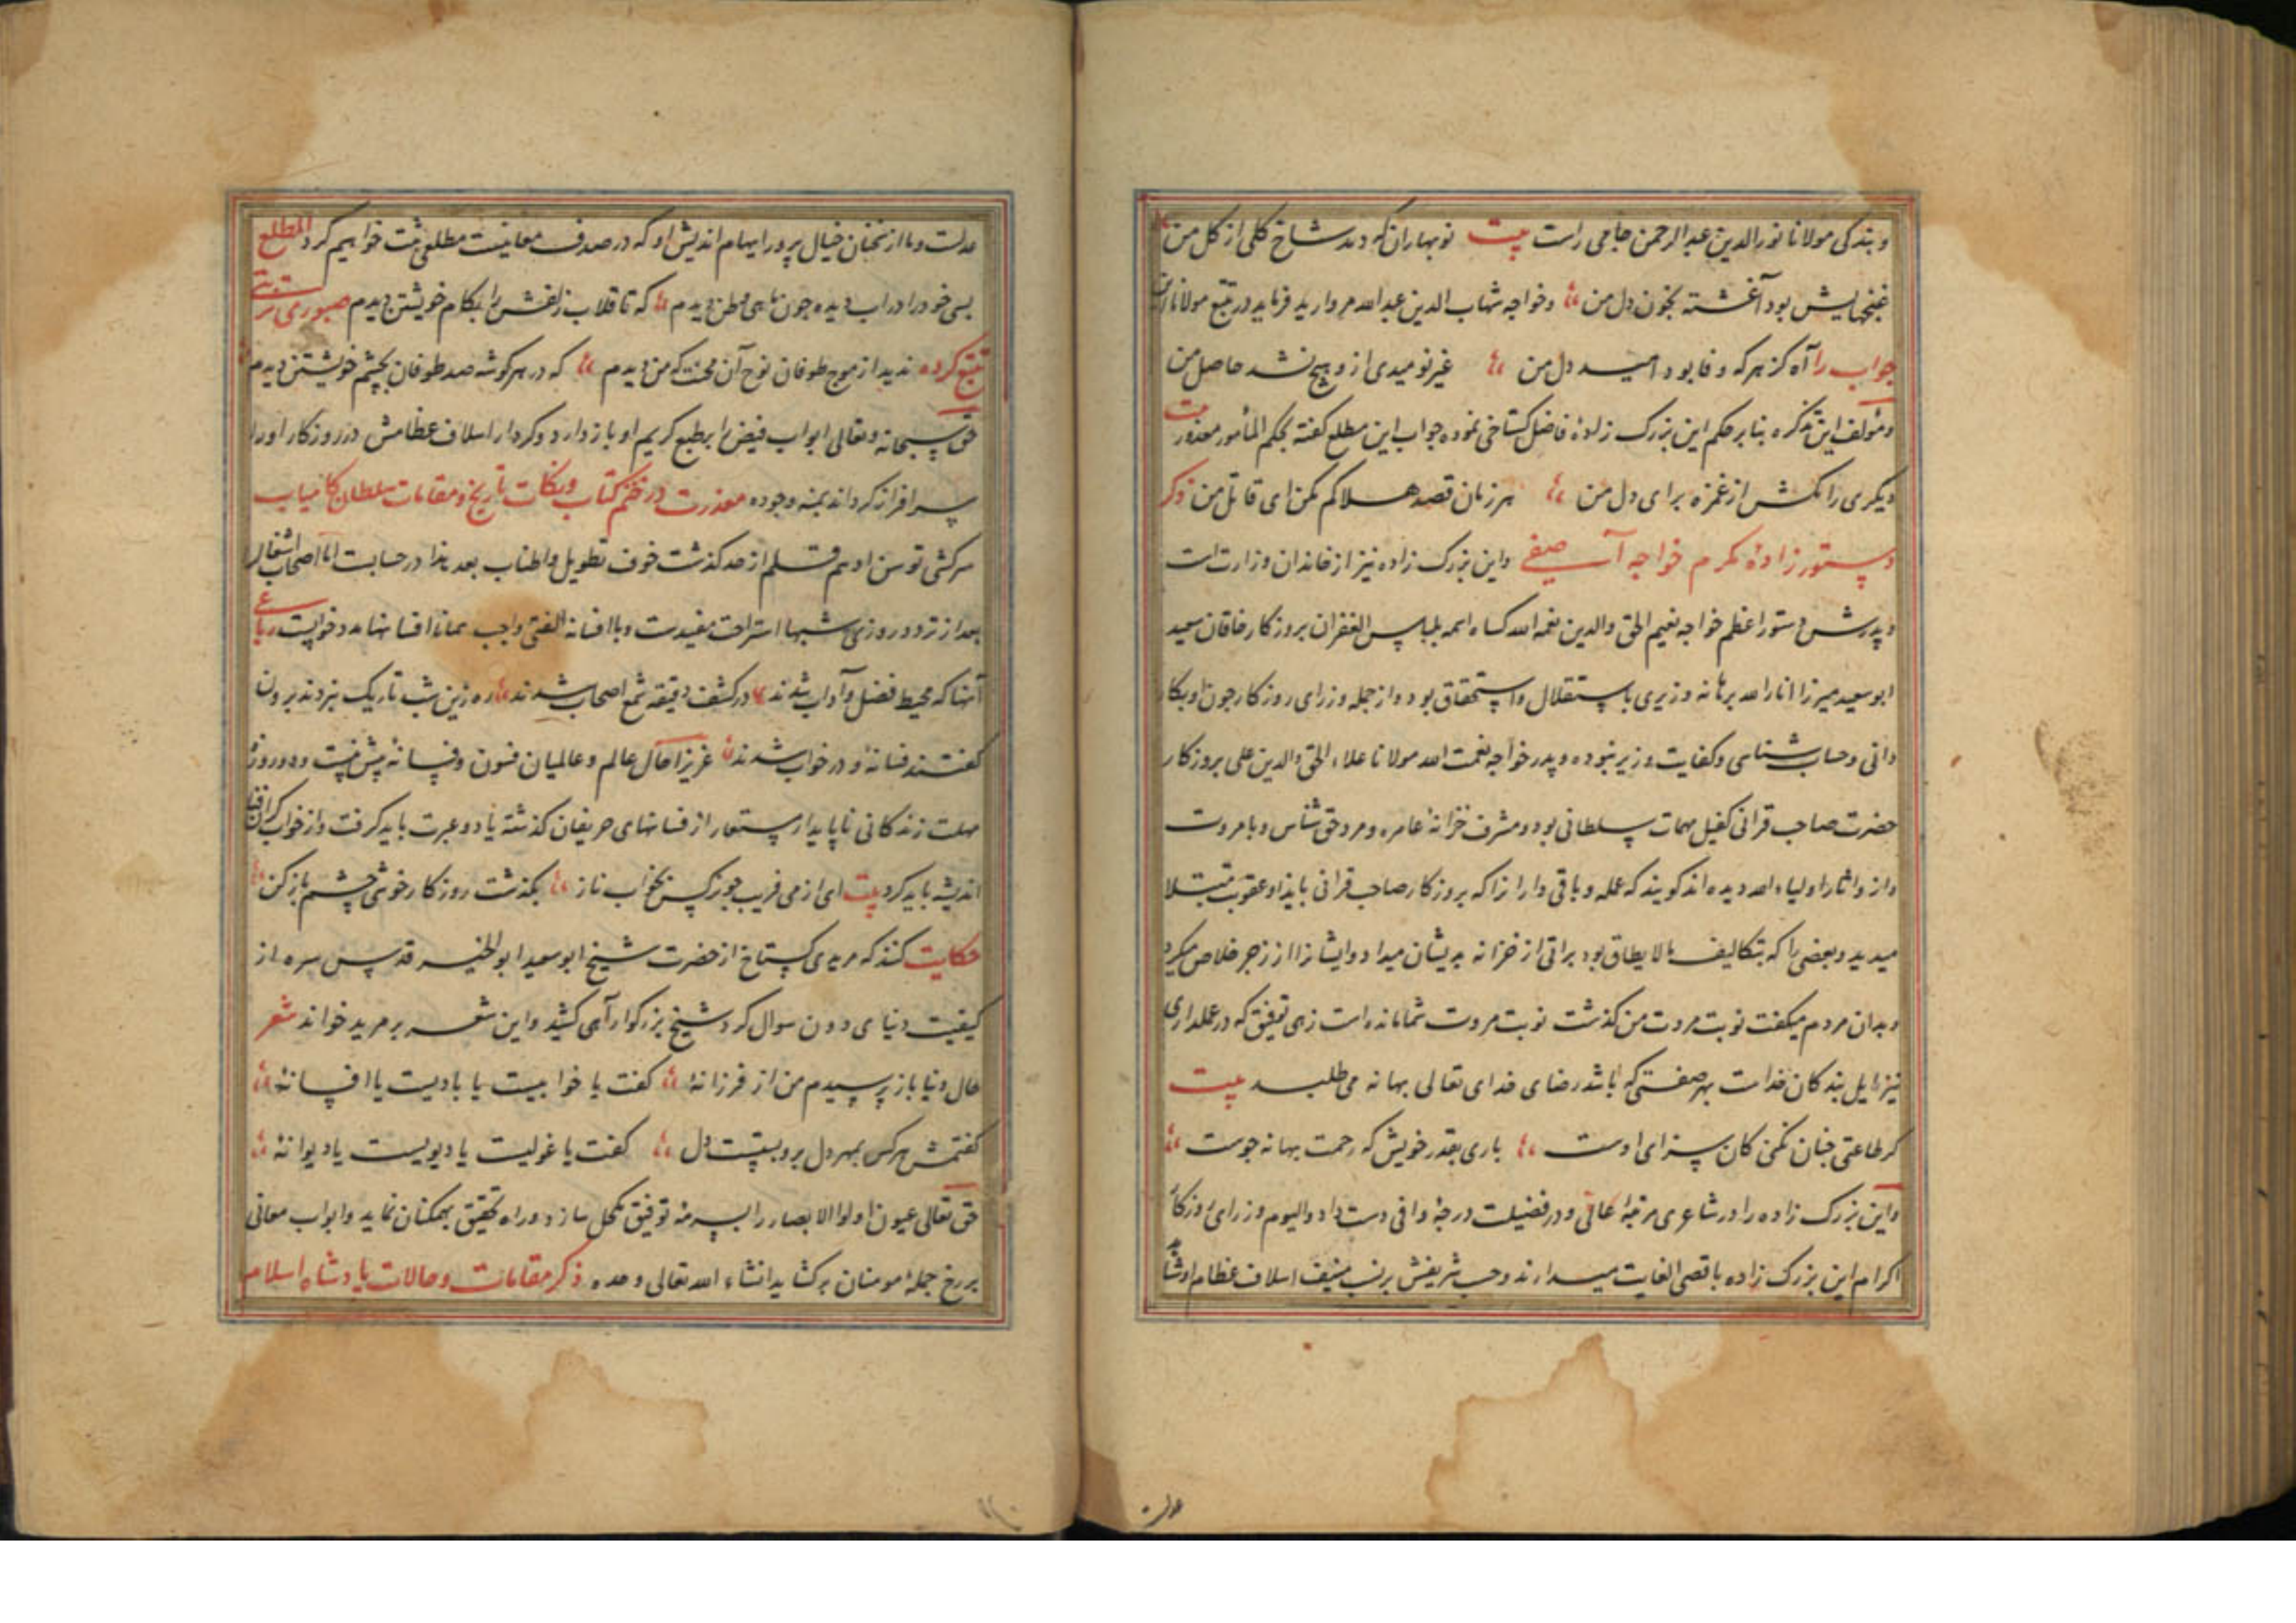 و بندگی مولانا نورالدین عبدالرحمن جامی راست بیت نوبهاران که دمد شاخ گلی از گل من
غنچهایش بود آغشته بخون دل من و خواجه شهاب الدین عبدالله مروارید فرماید در تتبع مولانا
جواب را آه کز هرکه وفا بود امید دل من غیر نومیدی ازو هیچ نشد حاصل من
و مؤلف این تذکره بنابر حکم این بزرک زادهٔ فاضل کستاخی نموده جواب این مطلع کفته بحکم المأمور معذور بیت
دیکری را مکش از غمزه برای دل من هر زمان قصد هلاکم مکن ای قاتل من ذکر
دستور زادهٔ مکرم خواجه آصفی و این بزرک زاده نیز از خاندان وزارت است
و پدرش دستور اعظم خواجه نعیم الحق والدین نعمه الله کساه الله بلباس الغفران بروزکار خاقان سعید
ابوسعید میرزا انارالله برهانه وزیری باستقلال و استحقاق بود و از جمله وزرای روزکار چون او بکار
دانی و حساب شناسی و کفایت وزیر نبوده و پدر خواجه نعمت الله مولانا علاء الحق والدین علی بروزکار
حضرت صاحب قرانی کفیل مهمات سلطانی بود و مشرف خزانهٔ عامره و مرد حق شناس و بامروت
و ازو اثار اولیاء الله دیده اند کویند که عمله و باقی داران را که بروزکار صاحب قرانی بایذا و عقوبت مبتلا
میدید و بعضی را که بتکالیف مالایطاق بود براتی از خزانه بدیشان میداد و ایشان را از زجر خلاص میکرد
و بدان مردم میکفت نوبت مروت من کذشت نوبت مروت شما مانده است زهی توفیق که در عملداری
نیز مایل بندکان خداست بهر صفتی که باشد رضای خدای تعالی بهانه می طلبد بیت
کر طاعتی چنان نکنی کان سزای اوست باری بقدر خویش که رحمت بهانه جوست
و این بزرک زاده را در شاعری مرتبهٔ عالی و در فضیلت درجهٔ وافی دست داد و الیوم وزرای روزکار
اکرام این بزرک زاده باقصی الغایت میدارند و حسب شریفش بر نسب منیف اسلاف عظام او شاهد
عدلست و ما از سخنان خیال پرور ایهام اندیش او که در صدف معانیست مطلعی ثبت خواهیم کرد المطلع
بسی خود را در اب دیده چون ماهی وطن دیدم که تا قلاب زلفش را بکام خویشتن دیدم صبوری
تتبع کرده ندید از موج طوفان نوح آن محنت که من دیدم که در هر کوشه صد طوفان بچشم خویشتن دیدم
حق سبحانه و تعالی ابواب فیض را بر طبع کریم او باز دارد و کردار اسلاف عظامش در روزکار او را
سرافراز کرداند بمنه وجوده معذرت در ختم کتاب و نکات تاریخ و مقامات سلطان کامیاب
سرکشی توسن ادهم قلم از حد کذشت خوف تطویل و اطناب بعد هذا در حسابست اما اصحاب اشغال را
بعد از تردد روزی شبها استراحت مفیدست و باافسانه الفتی واجب همانا افسانها مدد خوابست رباعی
آنها که محیط فضل و آداب شدند در کشف دقیقه شمع اصحاب شدند ره زین شب تاریک نبردند برون
کفتند فسانهٔ و در خواب شدند عزیزا حال عالم و عالمیان فسون و فسانهٔ بیش نیست و دو روز
مهلت زندکانی ناپایدار مستعار از فسانهای حریفان کذشته یاد و عبرت باید کرفت و از خواب کران
اندیشه باید کرد بیت ای از می فریب چو نرکس بخواب ناز بکذشت روزکار خوشی چشم باز کن
حکایت کنند که مریدی کستاخ از حضرت شیخ ابوسعید ابوالخیر قدس سره از
کیفیت دنیای دون سوال کرد شیخ بزرکوار آهی کشید و این شعر بر مرید خواند شعر
حال دنیا باز پرسیدم من از فرزانهٔ کفت یا خوابیست یا بادیست یا افسانهٔ
کفتمش هرکس بمهر دل برو بستست دل کفت یا غولیست یا دیویست یا دیوانهٔ
حق تعالی عیون اولوا الابصار را بسرمهٔ توفیق مکحل سازد و راه تحقیق بهمکنان نماید و ابواب معانی
بر رخ جملهٔ مومنان برکشاید انشاء الله تعالی وحده ذکر مقامات و حالات پادشاه اسلام
عدلست